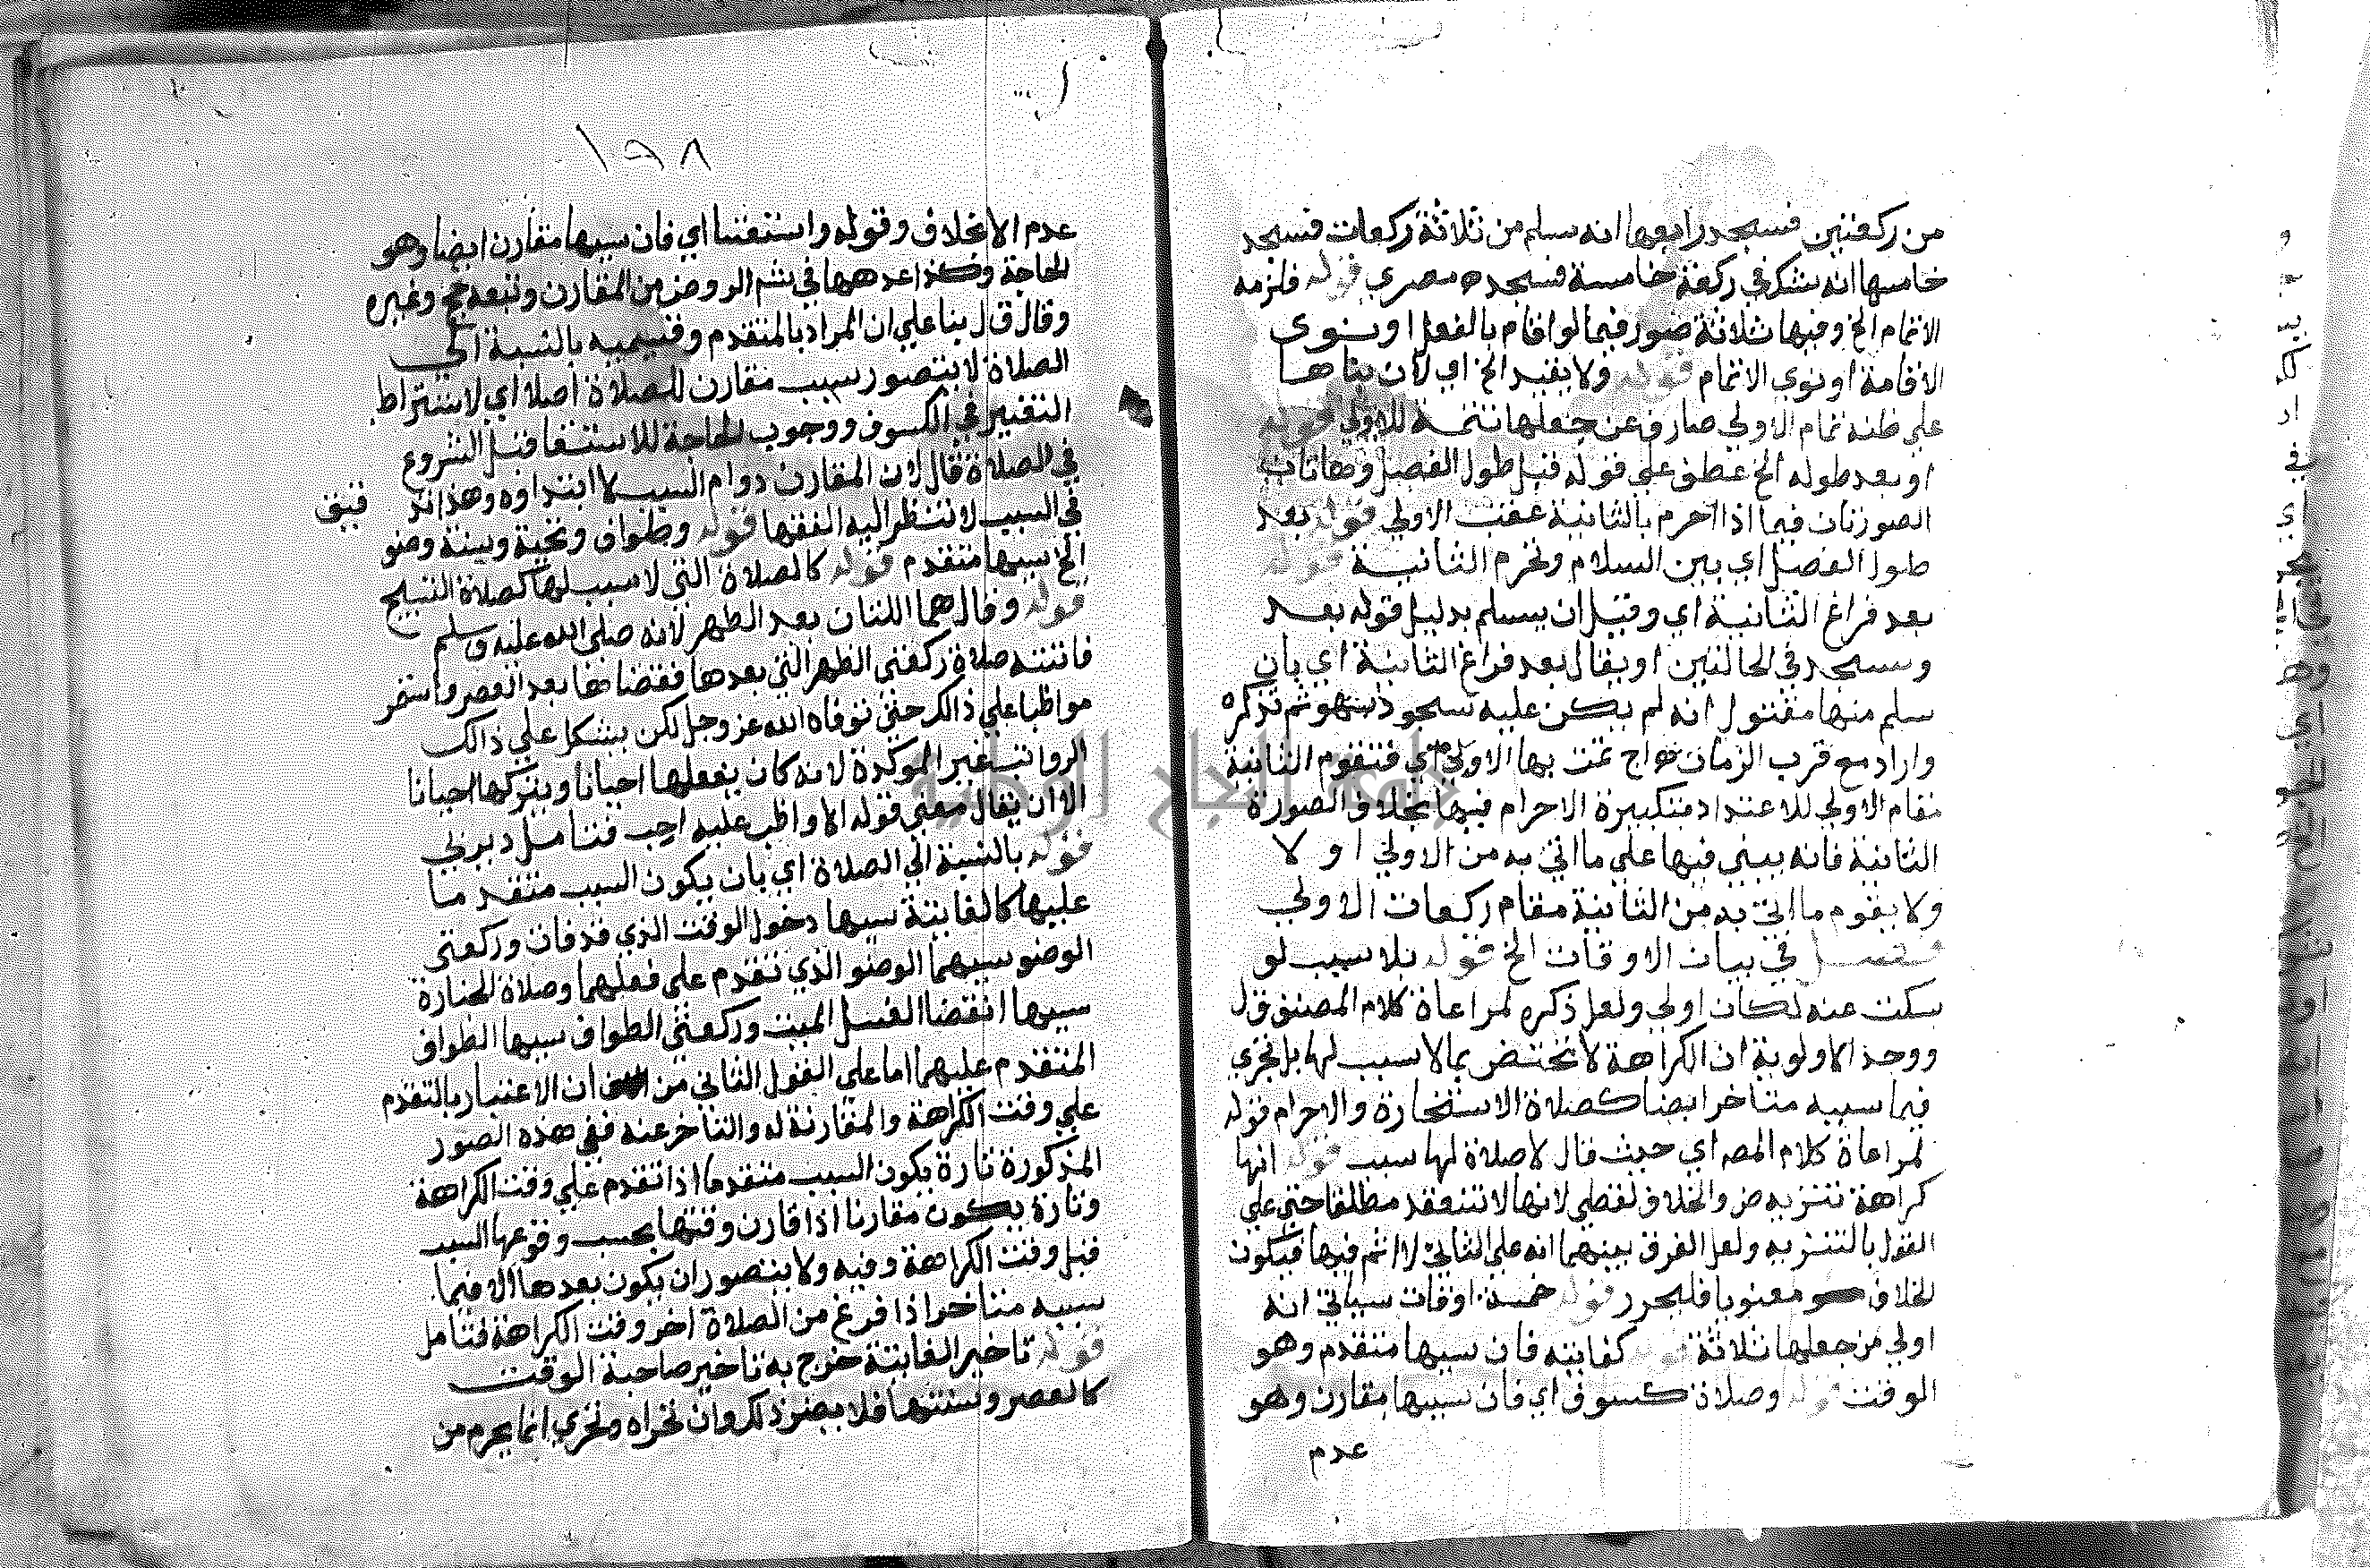 من ركعتين فسجد رابعها انه سلم من ثلاثة ركعات فسجد
خامسها انه شك في ركعة خامسة فسجده مصري قوله فلزمه
الاتمام الخ وفيها ثلاثة صور فيما لو اقام بالفعل او نوى
الاقامة او نوي الاتمام قوله ولا يفيد الخ اي لان بناها
علي ظنه تمام الاولي صارف عن جعلها تتمة للاولي قوله
او بعد طوله الخ عطف علي قوله قبل طول الفصل وهاتان
الصورتان فيما اذا احرم بالثانية عقب الاولي قوله بعد
طول الفصل اي بين السلام وتحرم الثانية قوله
بعد فراغ الثانية اي وقبل ان يسلم بدليل قوله بعد
وسجد في الحالتين او يقال بعد فراغ الثانية اي بان
سلم منها مفتول انه لم يكن عليه سجود سهو ثم تذكره
واراد مع قرب الزمان تمت بها الاولي اي فتقوم الثانية
مقام الاولي للاعتداد بتكبيرة الاحرام فيها بخلاف الصورة
الثانية فانه يبني فيها علي ما اتي به من الاولي او لا
ولا يقوم ما اتي به من الثانية مقام ركعات الاولي
فصل في بيان الاوقات الخ قوله بلا سبب لو
سكت عنه لكان اولي ولعل ذكره لمراعاة كلام المصنف ق ل
ووجه الاولوية ان الكراهة لا تختص بما لا سبب لها بل تجري
فيما سببه متاخر ايضا كصلاة الاستخارة والاحرام قوله
لمراعاة كلام المصه اي حيث قال لا صلاة لها سبب قوله انها
كراهة تنزيه ض والخلاف لفظي لانها لا تنعقد مطلقا حتي علي
القول بالتنزيه ولعل الفرق بينهما انه علي الثاني لا اثم فيها فيكون
الخلاف معنويا فليحرر قوله خمسة اوقات سياتي انه
اولي من جعلها ثلاثة قوله كفايته فان سببها متقدم وهو
الوقت قوله وصلاة كسوف اي فان سببها مقارن وهو
عدم
١٩٨
عدم الانجلاف وقوله واستسقا اي فان سببها مقارن ايضا وهو
الحاجة وكذا عدهما في شم الروض من المقارن وتبعه حج وغيره
وقال ق ل بنا علي ان المراد بالمتقدم وقسيميه بالنسبة الي
الصلاة لا يتصور سبب مقارن للصلاة اصلا اي لاشتراط
التغيير في الكسوف ووجوب الحاجة للاستسقا قبل الشروع
في الصلاة قال لان المقارن دوام السبب لا ابتداوه وهذا
في السبب لا تنظر اليه الفقها قوله وطواف وتحية وسنة وضو
الخ سببها متقدم قوله كالصلاة التي لا سبب لها كصلاة التسبيح
قوله وقال هما اللتان بعد الظهر لانه صلى الله عليه وسلم
فاتته صلاة ركعتي الظهر التي بعدها فقضاها بعد العصر واستمر
مواظبا علي ذالك حتي توفاه الله عز وجل لكن يشكل علي ذالك
الرواتب غير الموكدة لانه كان يفعلها احيانا ويتركها احيانا
الا ان يقال معني قوله الا واظب عليه اجب فتامل ديربي
قوله بالنسبة الي الصلاة اي بان يكون السبب متقدما
عليها كالفايتة سببها دخول الوقت الذي قد فات وركعتي
الوضو سببهما الوضو الذي تقدم علي فعلهما وصلاة الجنازة
سببها انقضا الغسل الميت وركعتي الطواف سببها الطواف
المتقدم عليهما اما علي القول الثاني من ان الاعتبار بالتقدم
علي وقت الكراهة والمقارنة له والتاخر عنه ففي هذه الصور
المذكورة تارة يكون السبب متقدما اذا تقدم علي وقت الكراهة
وتارة يكون مقارنا اذا قارن وقتها بحسب وقوعها السبب
قبل وقت الكراهة وفيه ولا يتصور ان يكون بعدها الا فيما
سببه متاخر اذا فرغ من الصلاة اخر وقت الكراهة فتامل
قوله تاخير الفايتة خرج به تاخير صاحبة الوقت
كالعصر وسنتها فلا يضر ذلك وان تحراه وتحري انما يحرم من